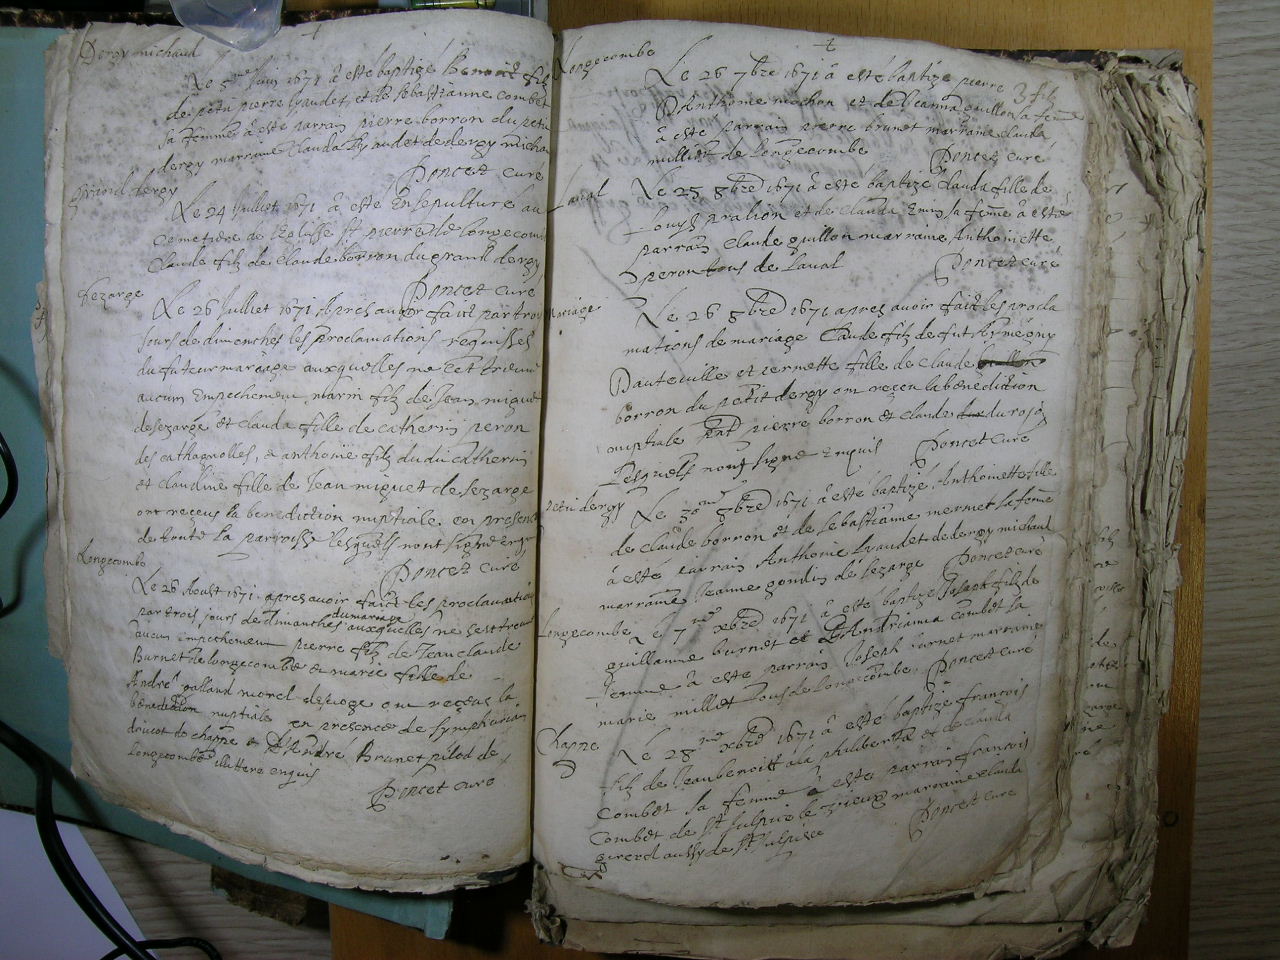 Dergy michaud
Le 5me Juin 1671 a esté baptizé Benoict filz
de petit pierre Lyaudet et de sebastianne combet
sa femme a este parrain pierre borron du petit
dergy marraine Clauda Lyaudet de dergy michau
Poncet curé
Grand dergy
Le 24 Juilliet 1671 a este Ensepulturé au
Cemetiere de l'eglisse st pierre de longecombe
Claude filz de Claude borron du grand dergy
Poncet curé
Lezarge
Le 26 Juilliet 1671 apres avoir faict par trois
Jours de dimenches les proclamations requisses
du futeur mariage auxquelles ne cet trouvé
aucun Empechement marin filz de Jean miguet
de sezarge et clauda fille de catherin peron
des cathagnolles, & anthoine filz dudit catherin
et claudine fille de Jean miguet de sezarge
ont reçeus la benediction nuptiale en presence
de toute la parroisse lesquels nont signé
Poncet curé
Longecombe
Le 26 Aoust 1671 apres avoir faict les proclamations
par trois jours de dimanches du mariage auxquelles ne sest trouvé
aucun empechement pierre filz de Jean claude
Burnet de longecombe & marie fille de
André galland morel ont reçeus la
benediction nuptiale en presence de symphorien
de chappe & André Brunet pilod de
longecombe illitteré enquis
Poncet curé
Longecombe
3 f
Le 26 7bre 1671 a esté baptizé pierre
D'Anthoine mochon et de Jeanna guillon sa femme
a este parrain pierre brunet marraine clauda
milliet de longecombe
Poncet curé
Laval
Le 25 8bre 1671 a este baptizé Clauda fille de
Louys pralion et de Clauda sa femme a esté
parrain Claude guillon marraine Anthoinette
peron tous de Laval
Poncet curé
mariage
Le 26 8bre 1671 apres avoir faict les procla
mations de mariage Claude filz de fut Aymé
Dauteville et pernette fille de claude
borron du petit dergy ont reçeu la benediction
nuptiale pierre borron et claude
Lesquels nont signé Enquis
Poncet curé
petit dergy
Le 30me 8bre 1671 a esté baptizé Anthoinette fille
de claude borron et de sebastianne mermet sa feme
a esté parrain Anthoine Lyaudet de dergy michaud
marraine Jeanne gondin de sezarge
Poncet curé
Longecombe
Le 7me xbre 1671 a esté baptizé Joseph filz de
guillaume burnet et D'Andrianna combet sa
femme a este parrain Joseph marraine
marie milliet tous de Longecombe.
Poncet curé
Chappe
Le 28me xbre 1671 a esté baptizé françois
filz de Jean benoitt a la philiberta et de clauda
Combet sa femme a esté parrain françois
Combet de st sulpice le vieux marraine clauda
girerd aussy de st sulpice
Poncet curé